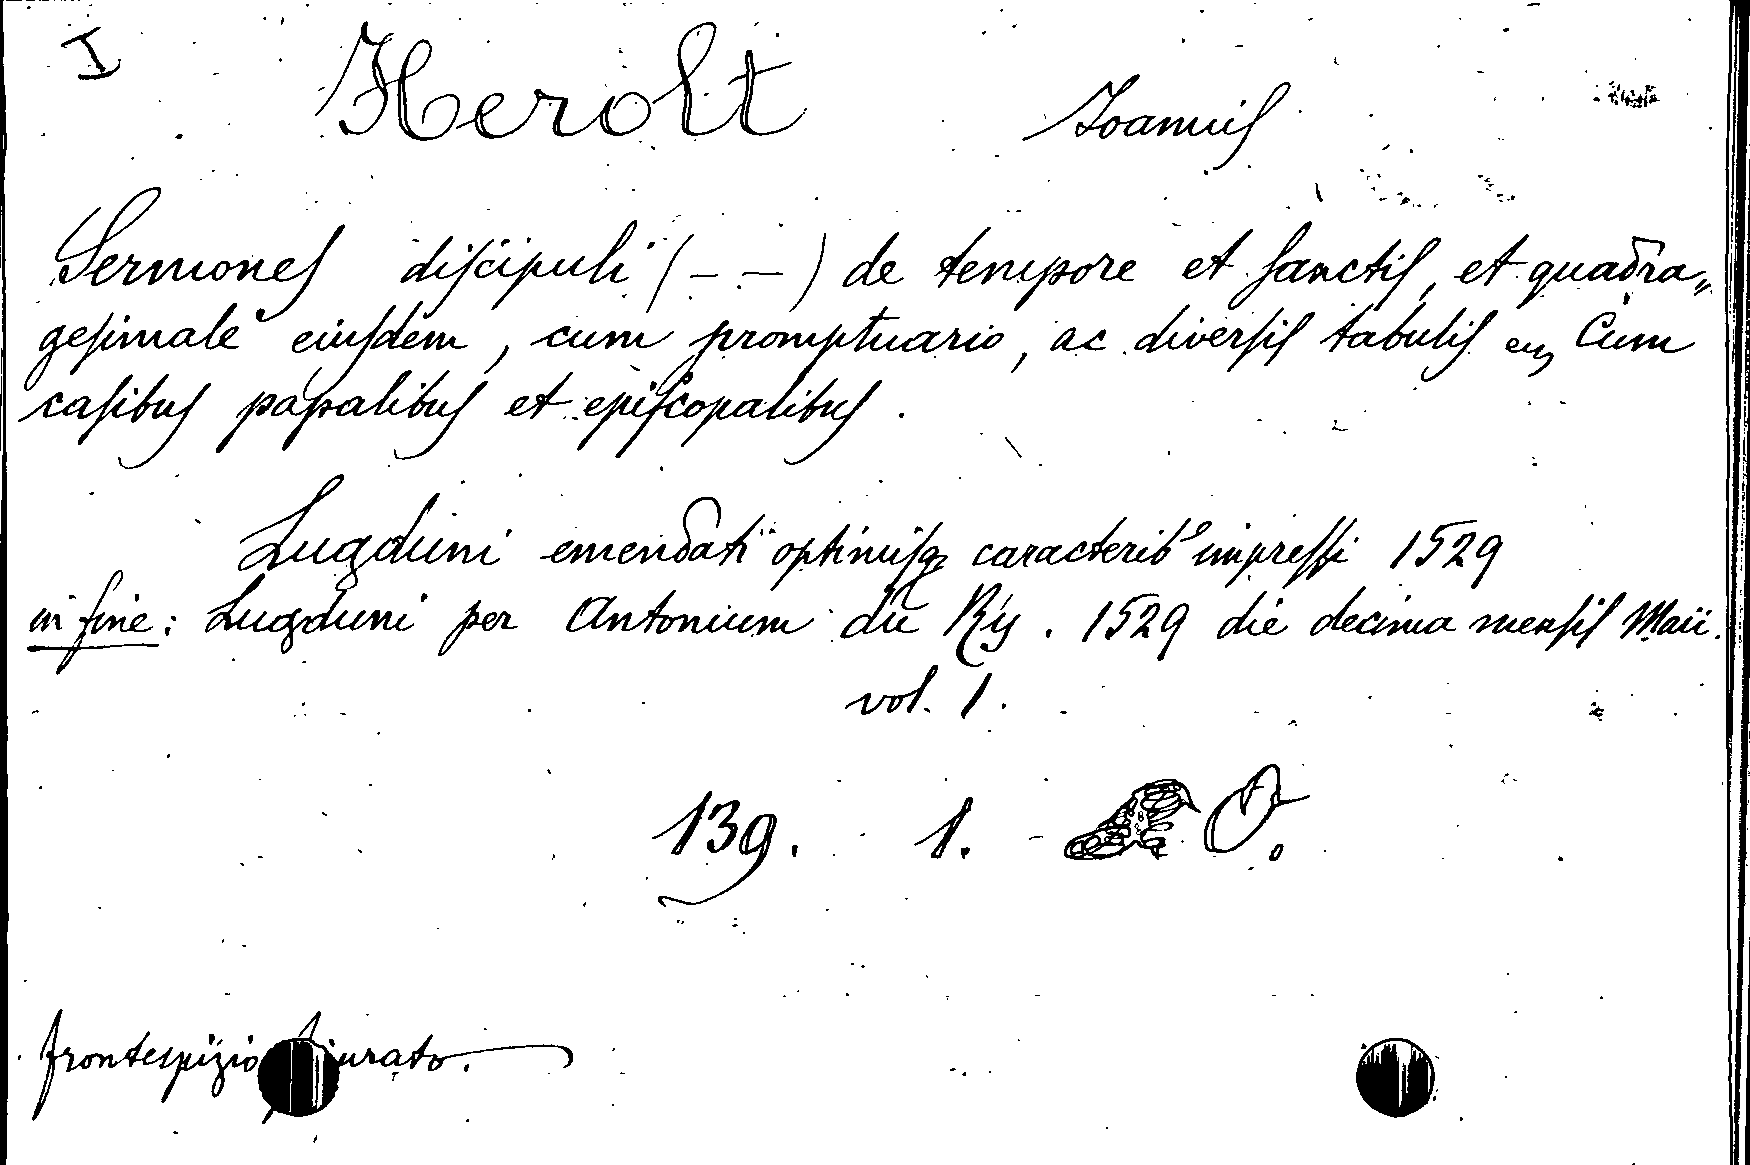 I Herolt Joannis
Sermones discipuli (- -) de tempore et sanctis, et quadra„
gesimale eiusdem, cum promptuario, ac diversis tabulis Cum
casibus papalibus et episcopalibus.
Lugduni emendati optimisq caracterib9 impressi 1529
in fine: Lugduni per Antonium du Ry. 1529 die decima mensis Maii.
vol. 1.
139. 1. O.
frontespizio